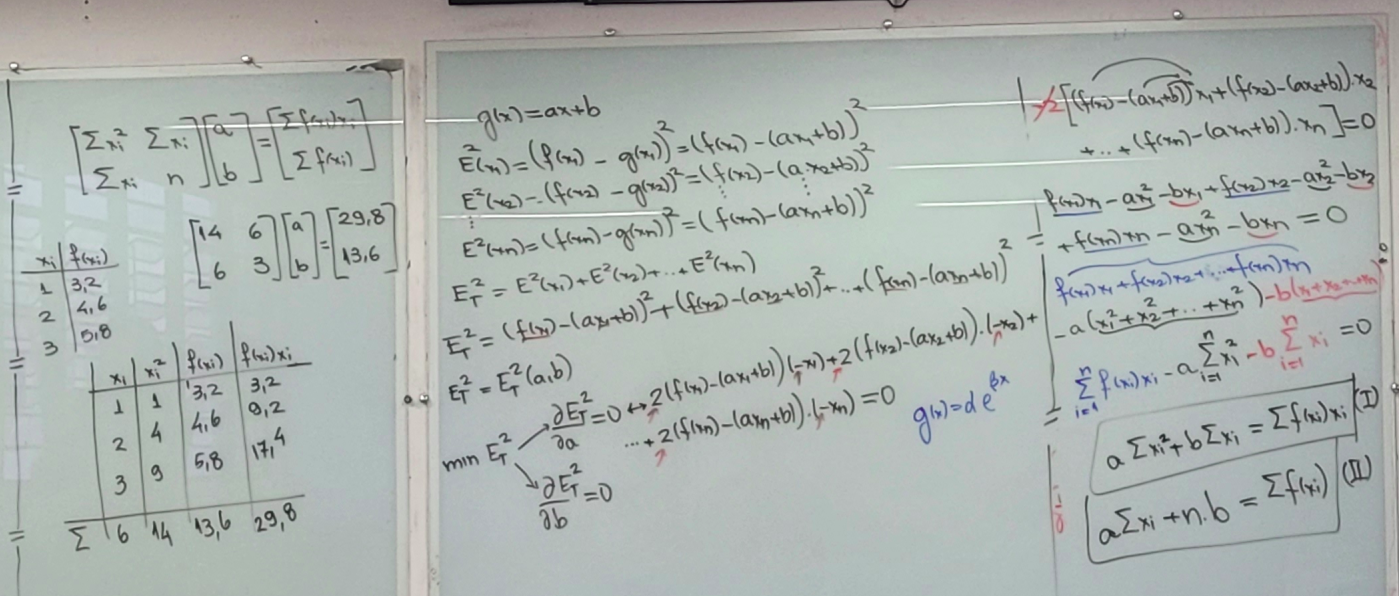 [Σxi² Σxi; Σxi n][a; b]=[Σf(xi)xi; Σf(xi)]
[14 6; 6 3][a; b]=[29,8; 13,6]
xi f(xi)
1 3,2
2 4,6
3 5,8
xi xi² f(xi) f(xi)xi
1 1 3,2 3,2
2 4 4,6 9,2
3 9 5,8 17,4
Σ 6 14 13,6 29,8
g(x)=ax+b
E²(x1)=(f(x1) - g(x1))²=(f(x1)-(ax1+b))²
E²(x2)=(f(x2) - g(x2))²=(f(x2)-(a.x2+b))²
⋮ ⋮
E²(xn)=(f(xn)-g(xn))²=(f(xn)-(axn+b))²
ET² = E²(x1)+E²(x2)+...+E²(xn)
ET² = (f(x1)-(ax1+b))²+(f(x2)-(ax2+b))²+..+(f(xn)-(axn+b))²
ET² = ET²(a,b)
min ET²
∂ET²/∂a=0 ↔ 2(f(x1)-(ax1+b))(-x1)+2(f(x2)-(ax2+b)).(-x2)+
...+2(f(xn)-(axn+b)).(-xn)=0
∂ET²/∂b=0
g(x)=de^βx
-2[(f(x1)-(ax1+b))x1+(f(x2)-(ax2+b)).x2
+..+(f(xn)-(axn+b)).xn]=0
f(x1)x1-ax1²-bx1+f(x2)x2-ax2²-bx2
+f(xn)xn-axn²-bxn=0
f(x1)x1+f(x2)x2+...+f(xn)xn
-a(x1²+x2²+..+xn²)-b(x1+x2+..+xn)
Σ i=1 n f(xi)xi-aΣ i=1 n xi²-bΣ i=1 n xi=0
aΣxi²+bΣxi=Σf(xi)xi (I)
aΣxi+n.b=Σf(xi) (II)